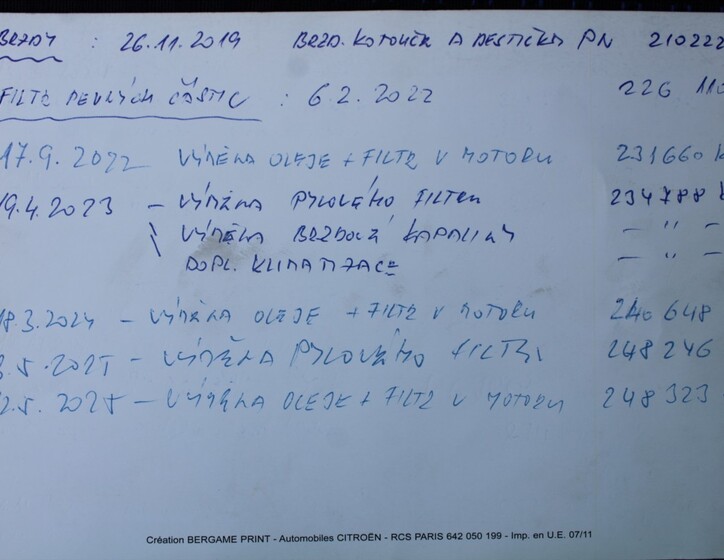 BRZDY : 26.11.2019 BRZD. KOTOUČE A DESTIČKA PN 210222
FILTR PEVNÝCH ČÁSTIC : 6.2.2022 226 110
17.9.2022 – VÝMĚNA OLEJE + FILTR V MOTORU 231660 k
19.4.2023 – VÝMĚNA PYLOVÉHO FILTRU 234788 k
\ VÝMĚNA BRZDOVÁ KAPALINY – " –
DOPL. KLIMATIZACE – " –
18.3.2024 – VÝMĚNA OLEJE + FILTR V MOTORU 240 648
.5.2025 – VÝMĚNA PYLOVÉHO FILTRU 248 246
2.5.2025 – VÝMĚNA OLEJE + FILTR V MOTORU 248 323
Création BERGAME PRINT - Automobiles CITROËN - RCS PARIS 642 050 199 - Imp. en U.E. 07/11